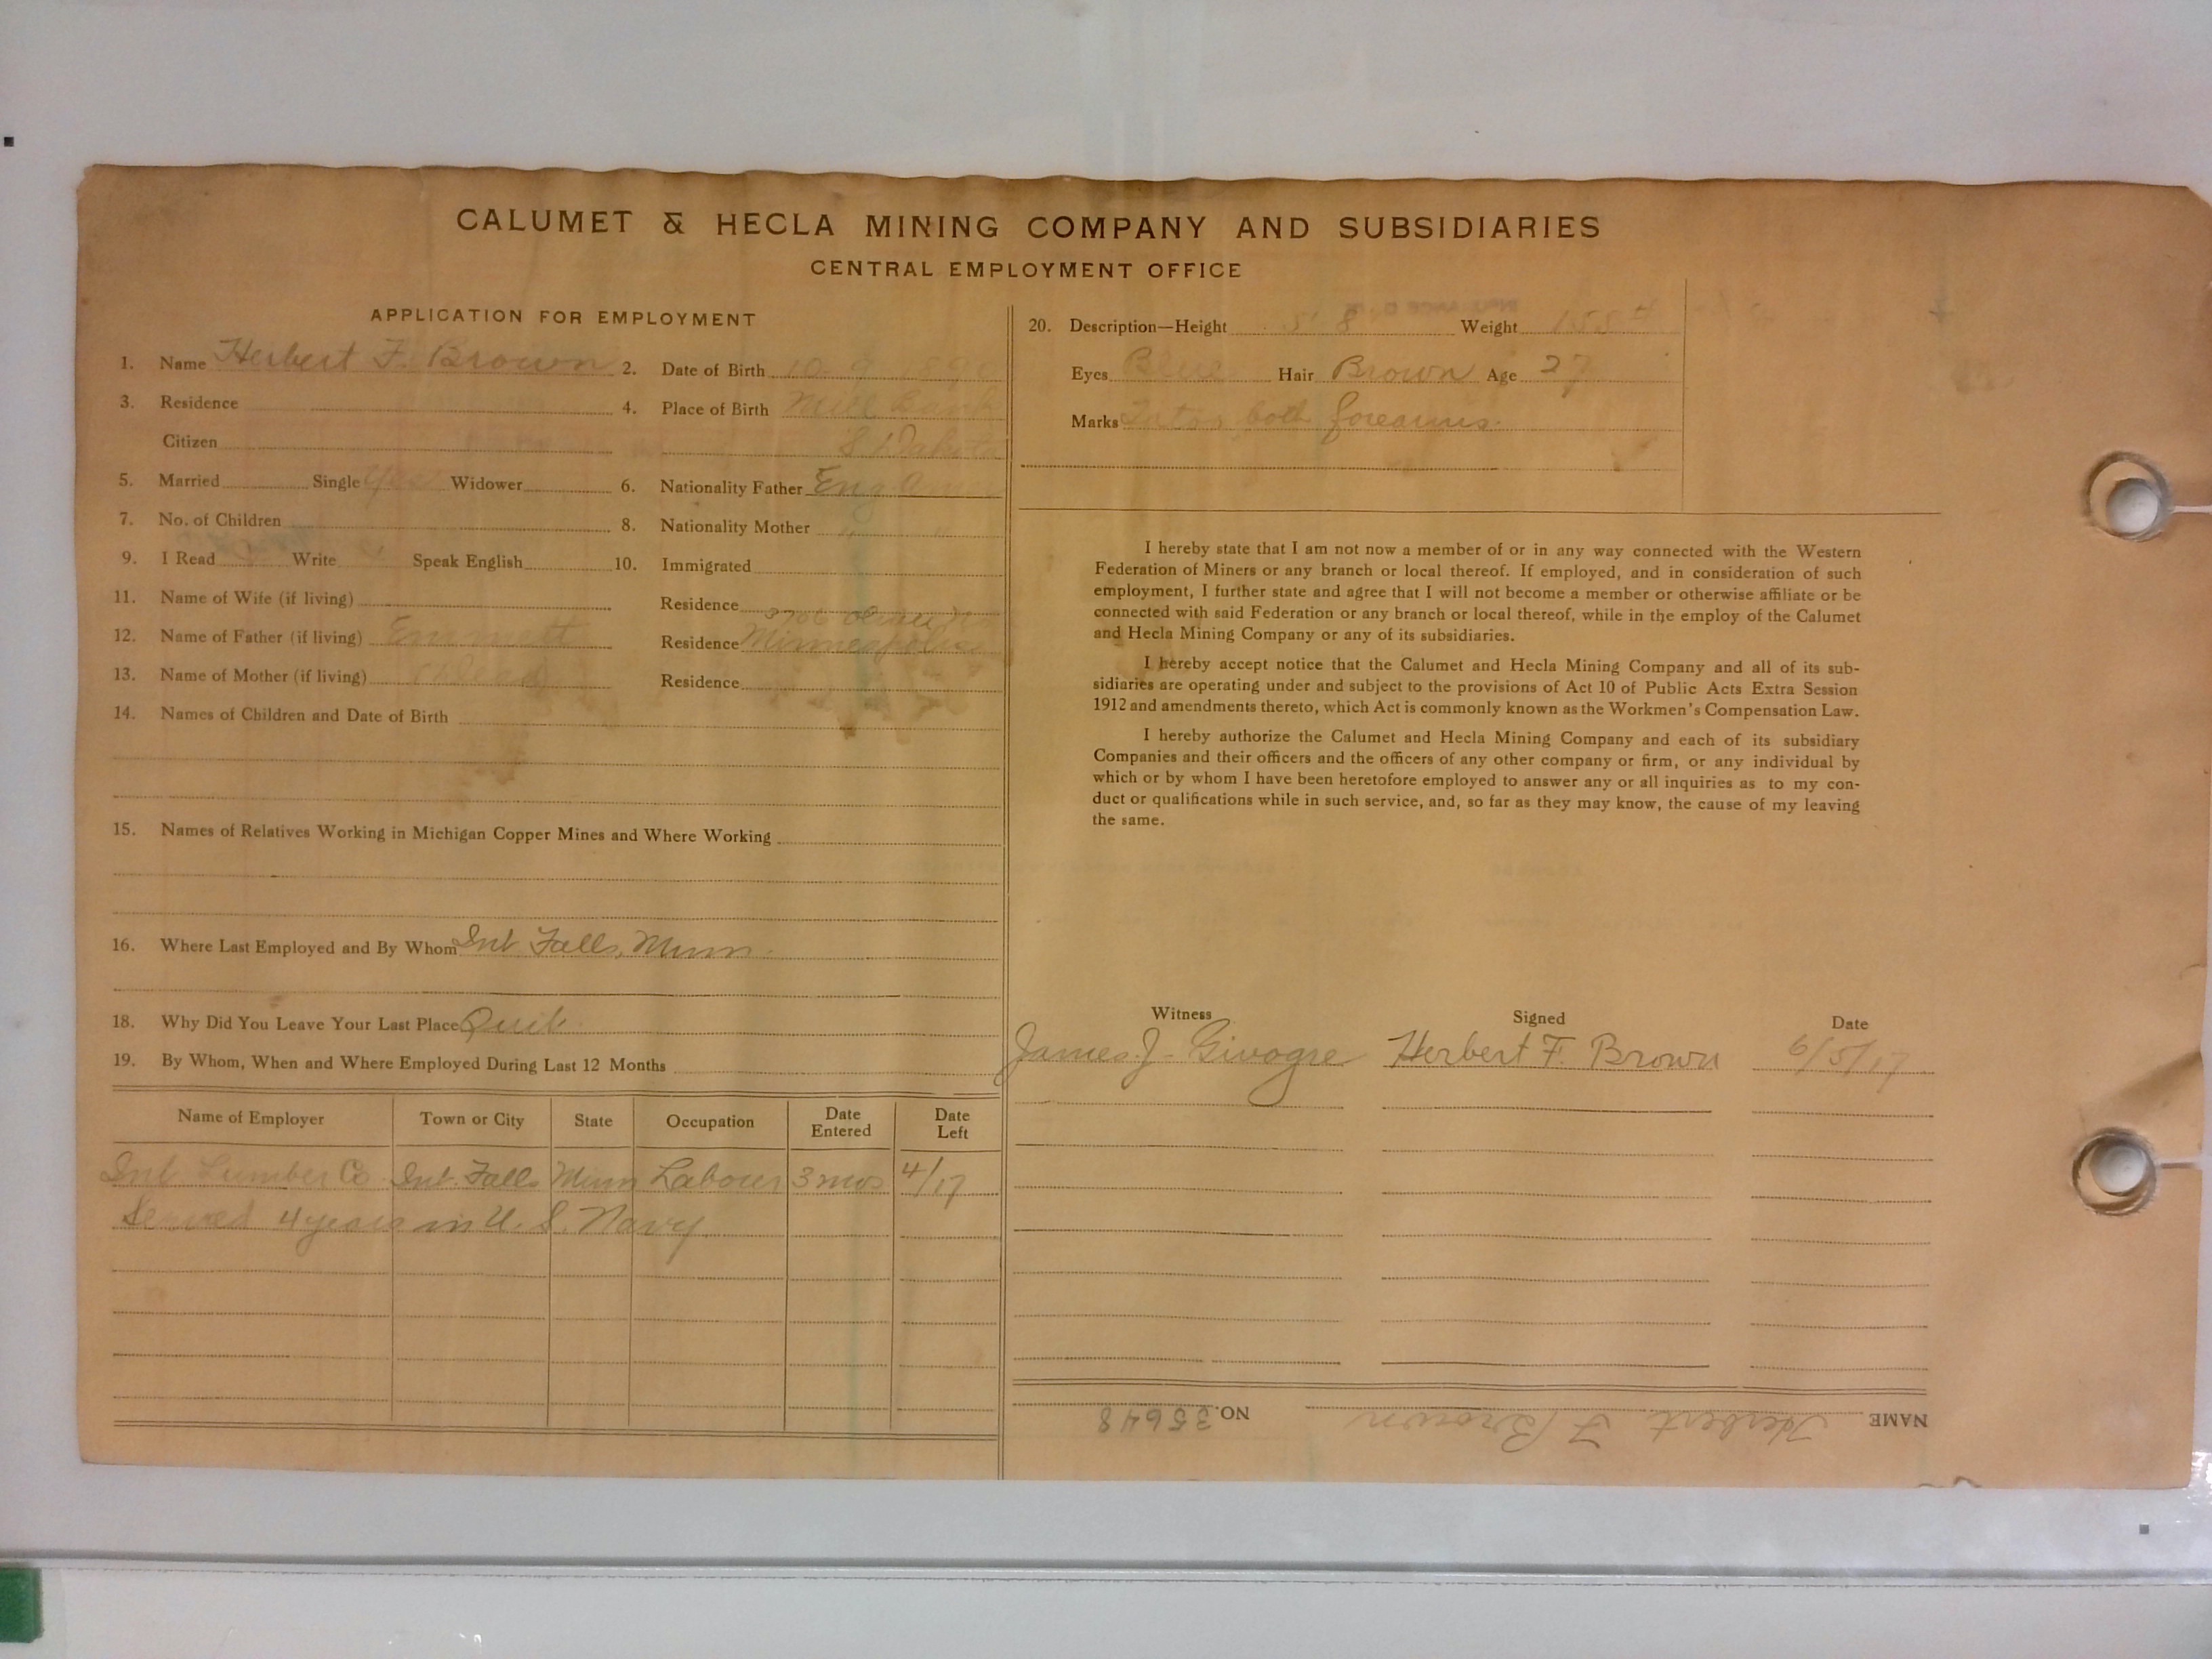 CALUMET & HECLA MINING COMPANY AND SUBSIDIARIES
CENTRAL EMPLOYMENT OFFICE
APPLICATION FOR EMPLOYMENT
1. Name Herbert F. Brown 2. Date of Birth 10 9
3. Residence 4. Place of Birth
Citizen S. Dakota
5. Married Single Yes Widower 6. Nationality Father
7. No. of Children 8. Nationality Mother " "
9. I Read Write Speak English 10. Immigrated
11. Name of Wife (if living) Residence
12. Name of Father (if living) Emmett Residence Minneapolis
13. Name of Mother (if living) Residence
14. Names of Children and Date of Birth
15. Names of Relatives Working in Michigan Copper Mines and Where Working
16. Where Last Employed and By Whom Int Falls, Minn.
18. Why Did You Leave Your Last Place Quit
19. By Whom, When and Where Employed During Last 12 Months
Name of Employer Town or City State Occupation Date Entered Date Left
Int Lumber Co Int. Falls Minn Labourer 3 mos 4/17
Served 4 years in U. S. Navy
20. Description—Height 5' 8 Weight 155#
Eyes Blue Hair Brown Age 27
Marks both forearms.
I hereby state that I am not now a member of or in any way connected with the Western
Federation of Miners or any branch or local thereof. If employed, and in consideration of such
employment, I further state and agree that I will not become a member or otherwise affiliate or be
connected with said Federation or any branch or local thereof, while in the employ of the Calumet
and Hecla Mining Company or any of its subsidiaries.
I hereby accept notice that the Calumet and Hecla Mining Company and all of its sub-
sidiaries are operating under and subject to the provisions of Act 10 of Public Acts Extra Session
1912 and amendments thereto, which Act is commonly known as the Workmen's Compensation Law.
I hereby authorize the Calumet and Hecla Mining Company and each of its subsidiary
Companies and their officers and the officers of any other company or firm, or any individual by
which or by whom I have been heretofore employed to answer any or all inquiries as to my con-
duct or qualifications while in such service, and, so far as they may know, the cause of my leaving
the same.
Witness Signed Date
James J. Givogre Herbert F. Brown 6/5/17
NAME Herbert F Brown NO. 35648